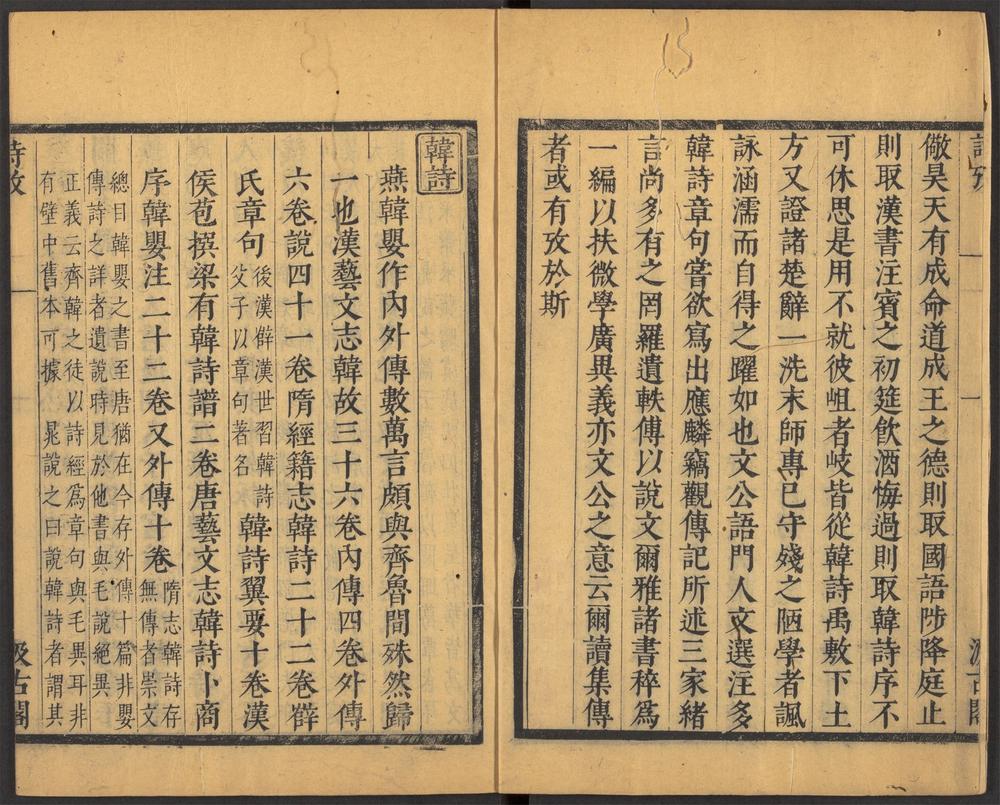 儆昊天有成命道成王之德則取國語陟降庭止
則取漢書注賓之初筵飲酒悔過則取韓詩序不
可休思是用不就彼岨者岐皆從韓詩禹敷下土
方又證諸楚辭一洗末師專己守殘之陋學者諷
詠涵濡而自得之躍如也文公語門人文選注多
韓詩章句嘗欲寫出應麟竊觀傳記所述三家緒
言尚多有之罔羅遺軼傳以說文爾雅諸書稡爲
一編以扶微學廣異義亦文公之意云爾讀集傳
者或有攷於斯
韓詩
燕韓嬰作內外傳數萬言頗與齊魯間殊然歸
一也漢藝文志韓故三十六卷內傳四卷外傳
六卷說四十一卷隋經籍志韓詩二十二卷薛
氏章句後漢薛漢世習韓詩父子以章句著名韓詩翼要十卷漢
侯苞撰梁有韓詩譜二卷唐藝文志韓詩卜商
序韓嬰注二十二卷又外傳十卷隋志韓詩存無傳者崇文
總目韓嬰之書至唐猶在今存外傳十篇非嬰
傳詩之詳者遺說時見於他書與毛說絕異
正義云齊韓之徒以詩經爲章句與毛異耳非
有壁中舊本可據 晁說之曰說韓詩者謂其
詩攷
一
汲古閣